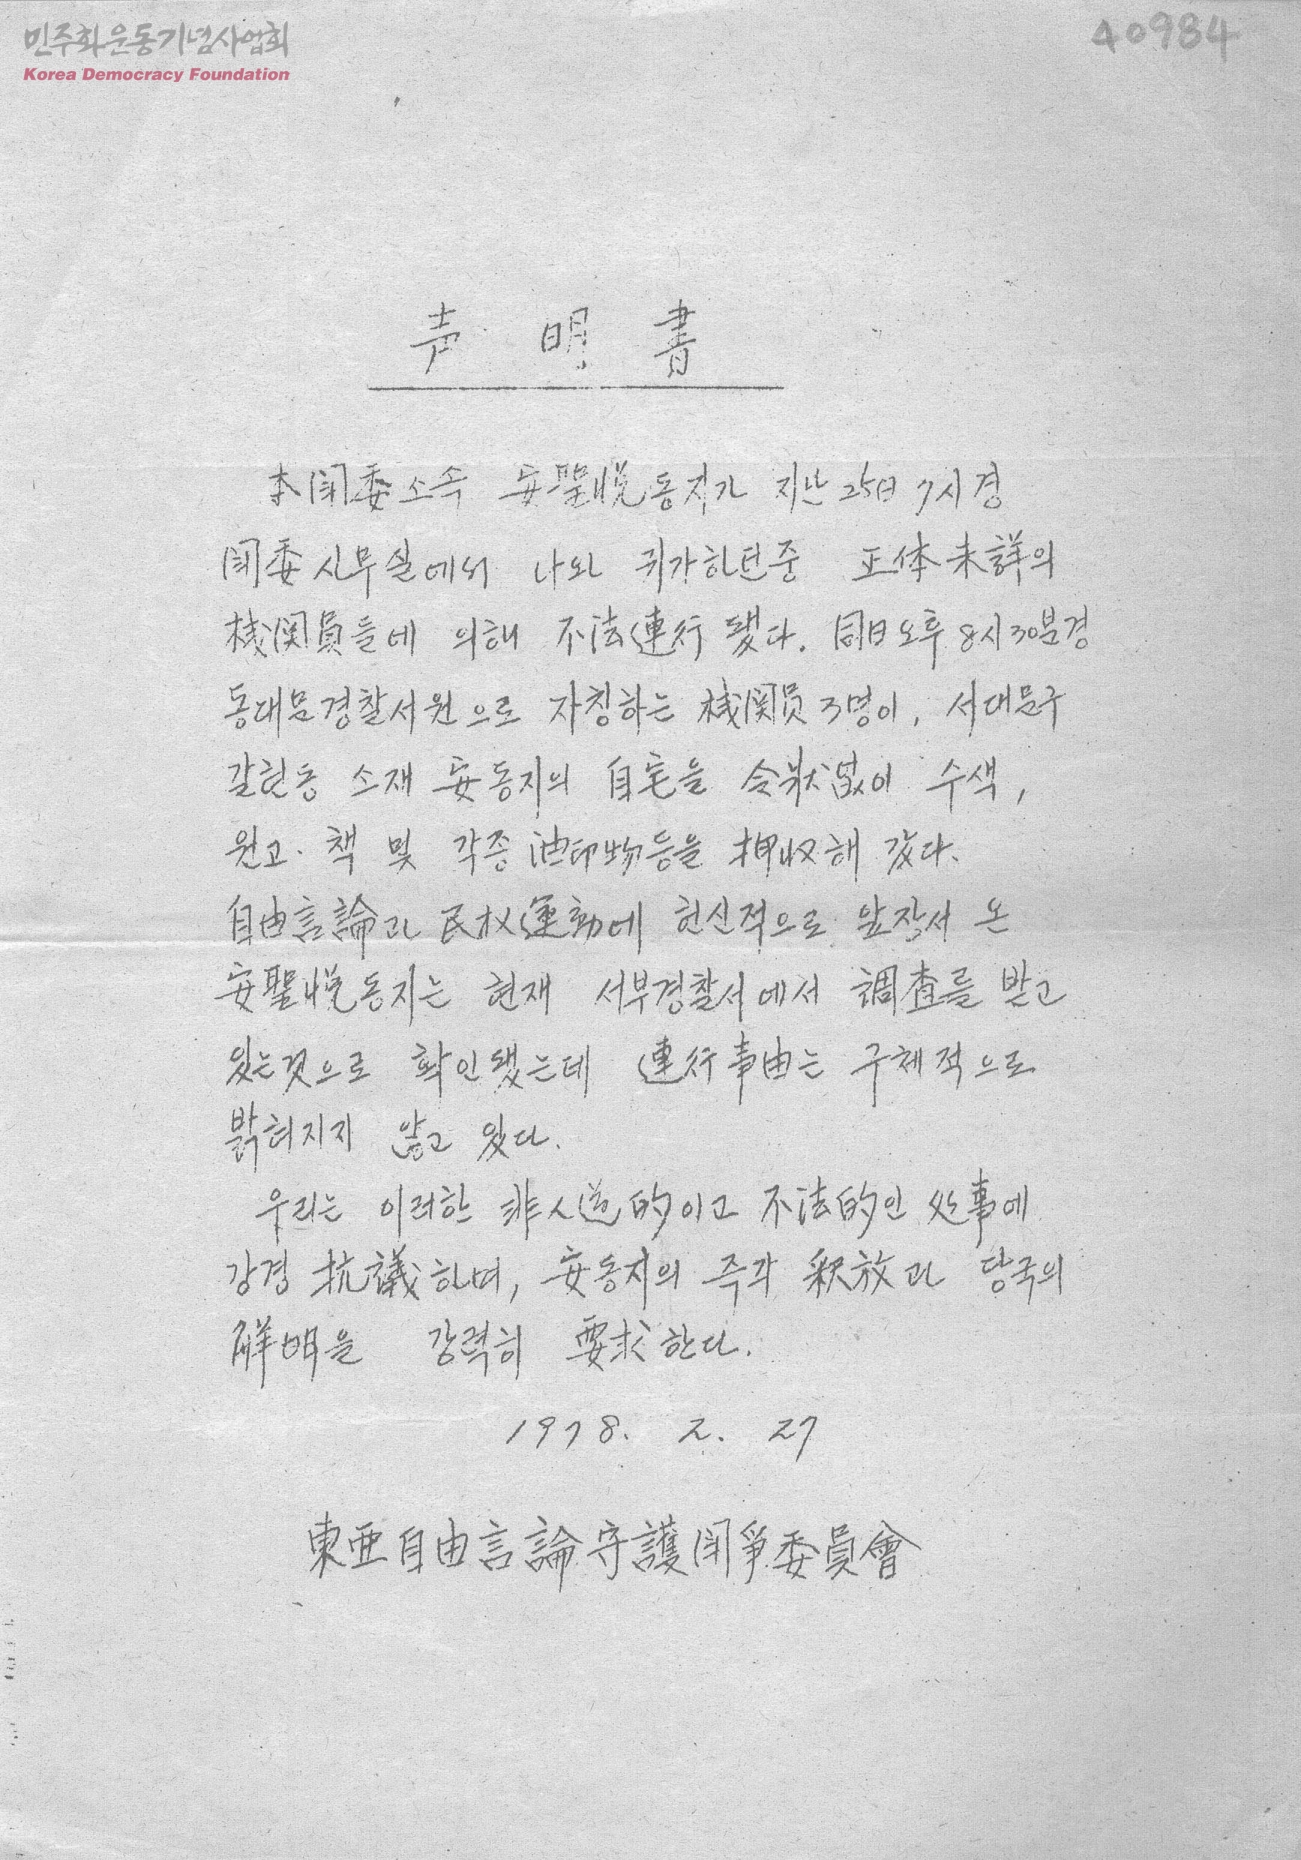 민주화운동기념사업회
Korea Democracy Foundation
40984
声 明 書
本闘委소속 安聖悦동지가 지난 25日 7시경
闘委사무실에서 나와 귀가하던중 正体未詳의
機関員들에 의해 不法連行됐다. 同日오후 8시30분경
동대문경찰서원으로 자칭하는 機関员 3명이, 서대문구
갈현동 소재 安동지의 自宅을 令狀없이 수색,
원고·책 및 각종 油印物등을 押収해 갔다.
自由言論과 民权運動에 헌신적으로 앞장서 온
安聖悦동지는 현재 서부경찰서에서 調査를 받고
있는것으로 확인됐는데 連行事由는 구체적으로
밝혀지지 않고 있다.
우리는 이러한 非人道的이고 不法的인 処事에
강경 抗議하며, 安동지의 즉각 釈放과 당국의
解明을 강력히 要求한다.
1978. 2. 27
東亜自由言論守護闘爭委員會